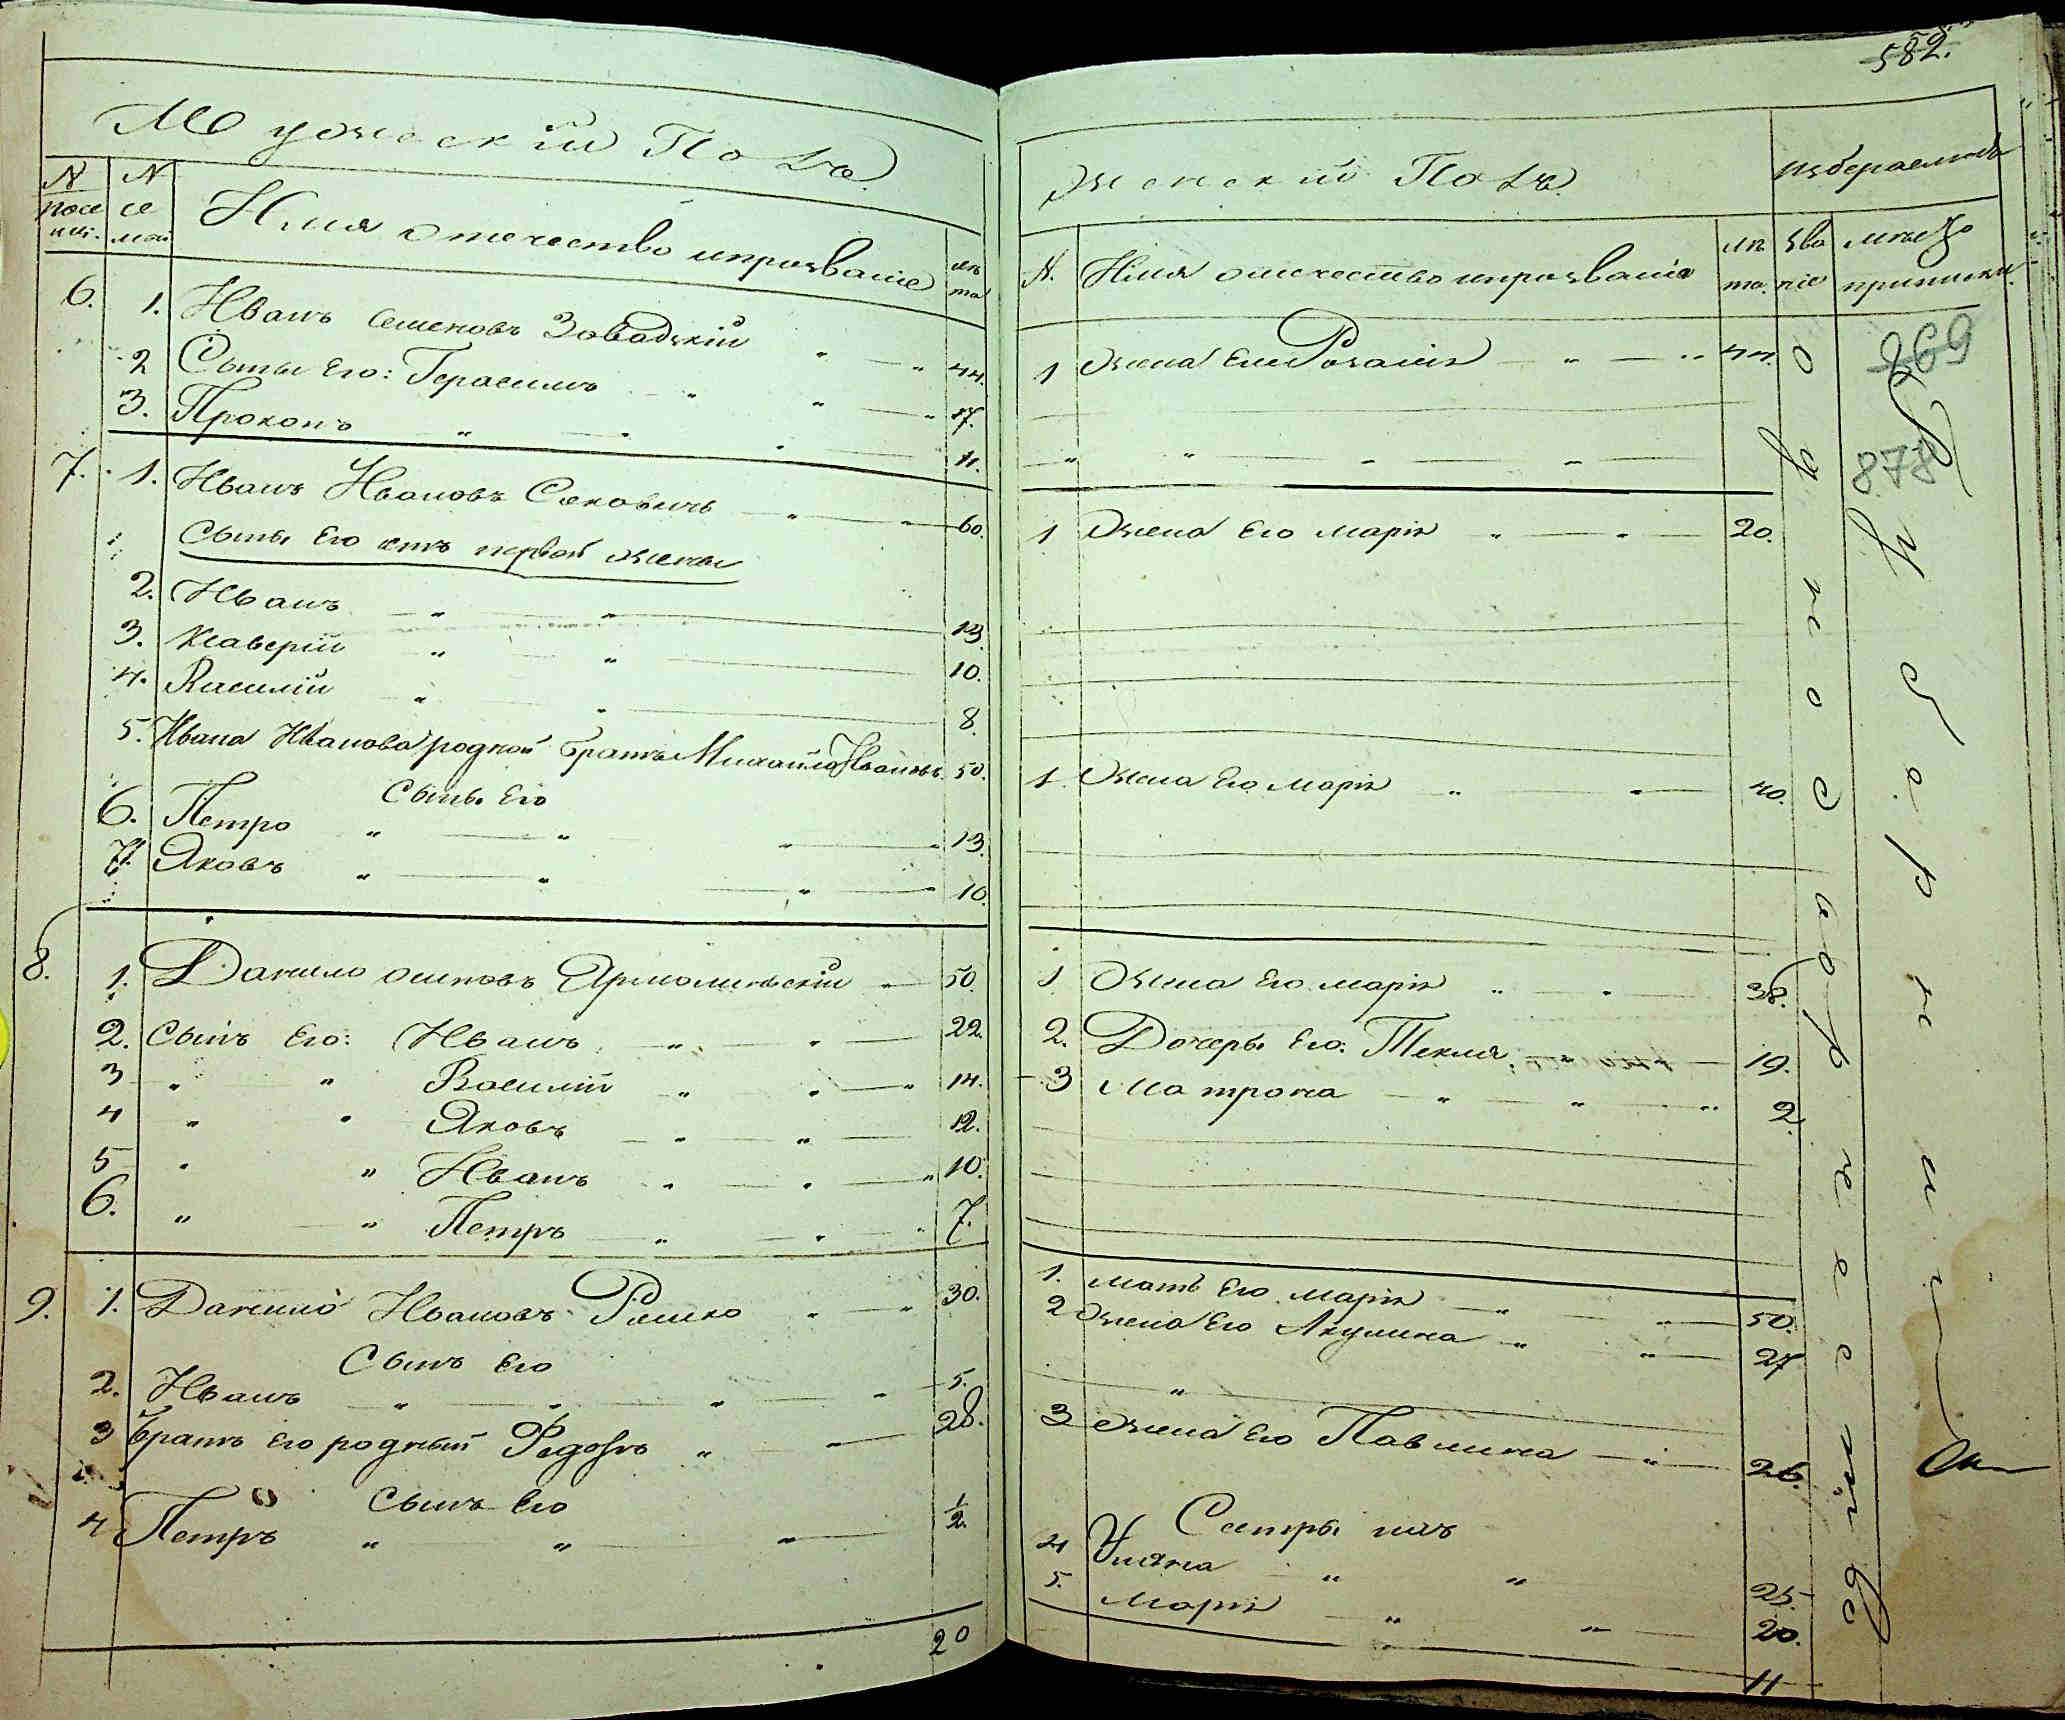 582.
Мужескій Полъ.
N посе мей.
N се мей
Имя отечество ипрозваніе
лѣ та
6. 1. Иванъ Семеновъ Завадзкій „ — „ 44.
2 Сыны Его: Герасимъ „ „ — „ 17.
3. Прокопъ „ — „ — 11.
7. 1. Иванъ Ивановъ Саковичъ — „ — „ — 60.
Сыны Его отъ первой жены
2. Иванъ — „ — „ — 13.
3. Ксаверій „ — „ — 10.
4. Василій — „ — „ — 8.
5. Ивана Иванова родной братъ Михайло Ивановъ. 50.
Сыны Его
6. Петро „ — „ — „ — 13.
7. Яковъ „ — „ — „ — „ 10.
8. 1. Данило осиповъ Ярмолинскій „ — 50.
2. Сынъ Его: Иванъ — „ — „ — 22.
3 „ „ Василій — „ — „ — „ 14.
4 „ „ Яковъ — „ — „ — 12.
5 „ „ Иванъ „ — „ — „ 10.
6. „ — „ Петръ — „ — „ — „ 7.
9. 1. Данило Ивановъ Рашко „ — „ 30.
Сынъ Его
2. Иванъ — „ — „ — „ — „ — 5.
3 братъ Его родный Федоръ „ — „ — 28.
Сынъ Его
4 Петръ „ „ — „ — 1/2.
20
Женскій Полъ
избераемыя
N. Имя отечество ипрозваніе
лѣ та.
зва ніе
мѣсто приписки.
1 Жена Его Розалія — „ — „ 44.
269
878
„ „ — „ — „ —
1 Жена Его Марія „ — „ — 20.
1. Жена Его Марія — „ — „ — 40.
1 Жена Его Марія „ — „ — 38.
2. Дочеры Его: Текля — 19.
3 Матрона — „ — „ — „ 2.
1. мать Его Марія — „ — „ — 50.
2 Жена Его Акулина — „ — „ — 27
„
3 Жена Его Павлина — „ — 26.
Сестры ихъ
4 Уляна — „ — „ 25.
5. Марія — „ — „ — 20.
11
однодворческое